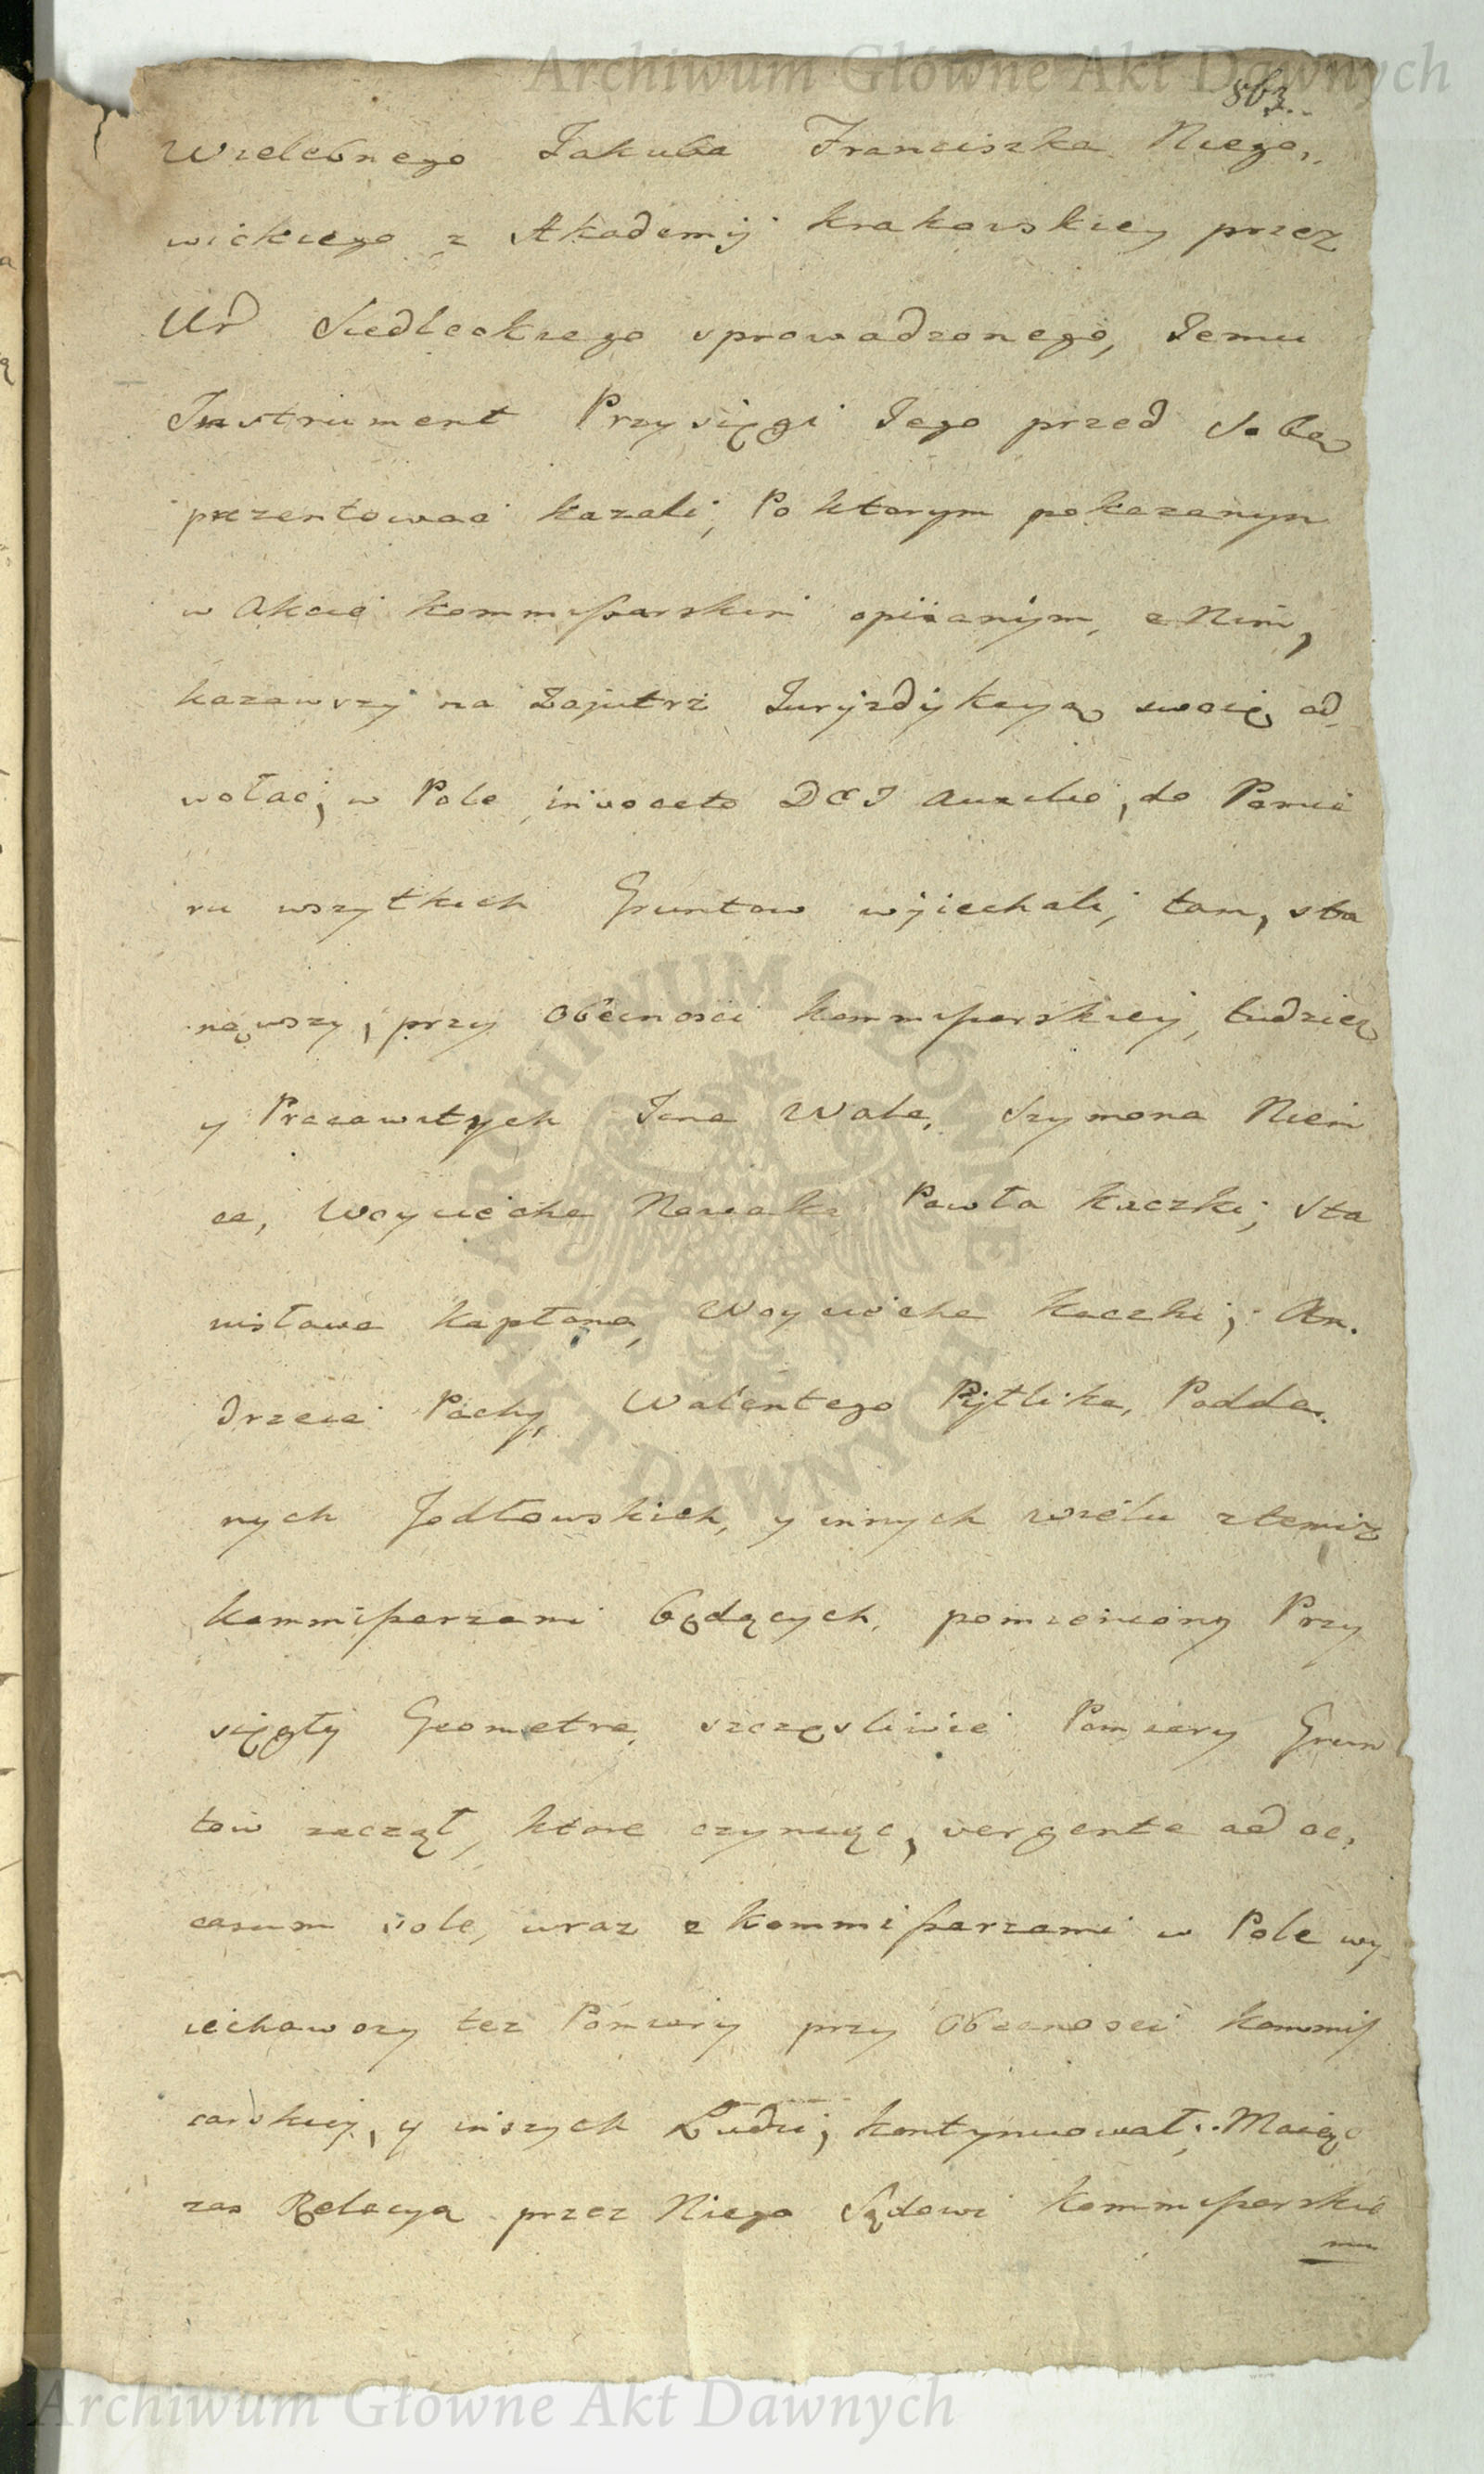 Archiwum Główne Akt Dawnych
863.
Wielebnego Jakuba Franciszka Niego,,
wickiego z Akademij Krakowskiey przez
Ur Siedleckiego sprowadzonego, Jemu
Instrument Przysięgi Jego przed Sobą
prezentowac kazali, Po ktorym pokazanym
w Akcie kommissarskim opisanym, z Nim,
kazawszy na Zajutrz Juryzdykcyą swoię od,
wołac, w Pole invocato DEI Auxilio, do Pomia
ru wszytkich Gruntow wyiechali, tam, sta
nąwszy, przy Obecnosci kommissarskiey, tudziez
y Pracawitych Jana Wala, Szymona Niem
ca, Woyciecha Nowaka Pawła Kaczki, Sta
nisława Kapłona, Woyciecha Kaczki, An.
drzeia Pachy, Walentego Pytlika, Podda.
nych Jodłowskich, y innych wielu z temiz
kommissarzami będących, pomieniony Przy
sięgły Geometra, szczęsliwie Pomiary Grun
tow zaczął, ktore czyniąc, vergente ad oc,
casum sole, wraz z kommissarzami w Pole wy
iechawszy tez Pomiary przy Obecnosci kommis
sarskiey, y inszych Ludzi, kontynuował. Maiąc
zas Relacyą przez Niego Sądowi kommissarskie
mu
ARCHIWUM GŁÓWNE AKT DAWNYCH
Archiwum Główne Akt Dawnych